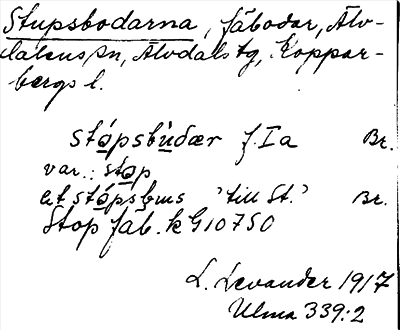 Stupsbodarna, fäbodar, Älv-
dalens sn, Älvdals tg, Koppar-
bergs l.
stópsbùdær f. Ia Br.
var.: stop
at stópsbms 'till St.' Br.
Stop fäb. k G10750
L. Levander 1917
Ulma 339:2